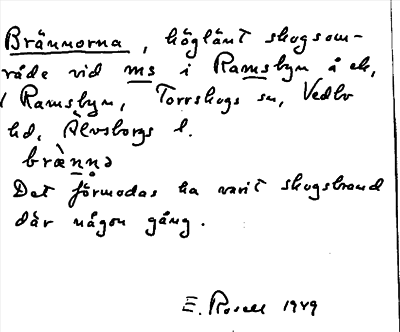 Brännorna, höglänt skogsom-
råde vid ms i Ramsbyn å ek,
Ramsbyn, Torrskogs sn, Vedbo
hd, Älvsborgs l.
brænnə
Det förmodas ha varit skogsbrand
där någon gång.
E. Rosell 1949